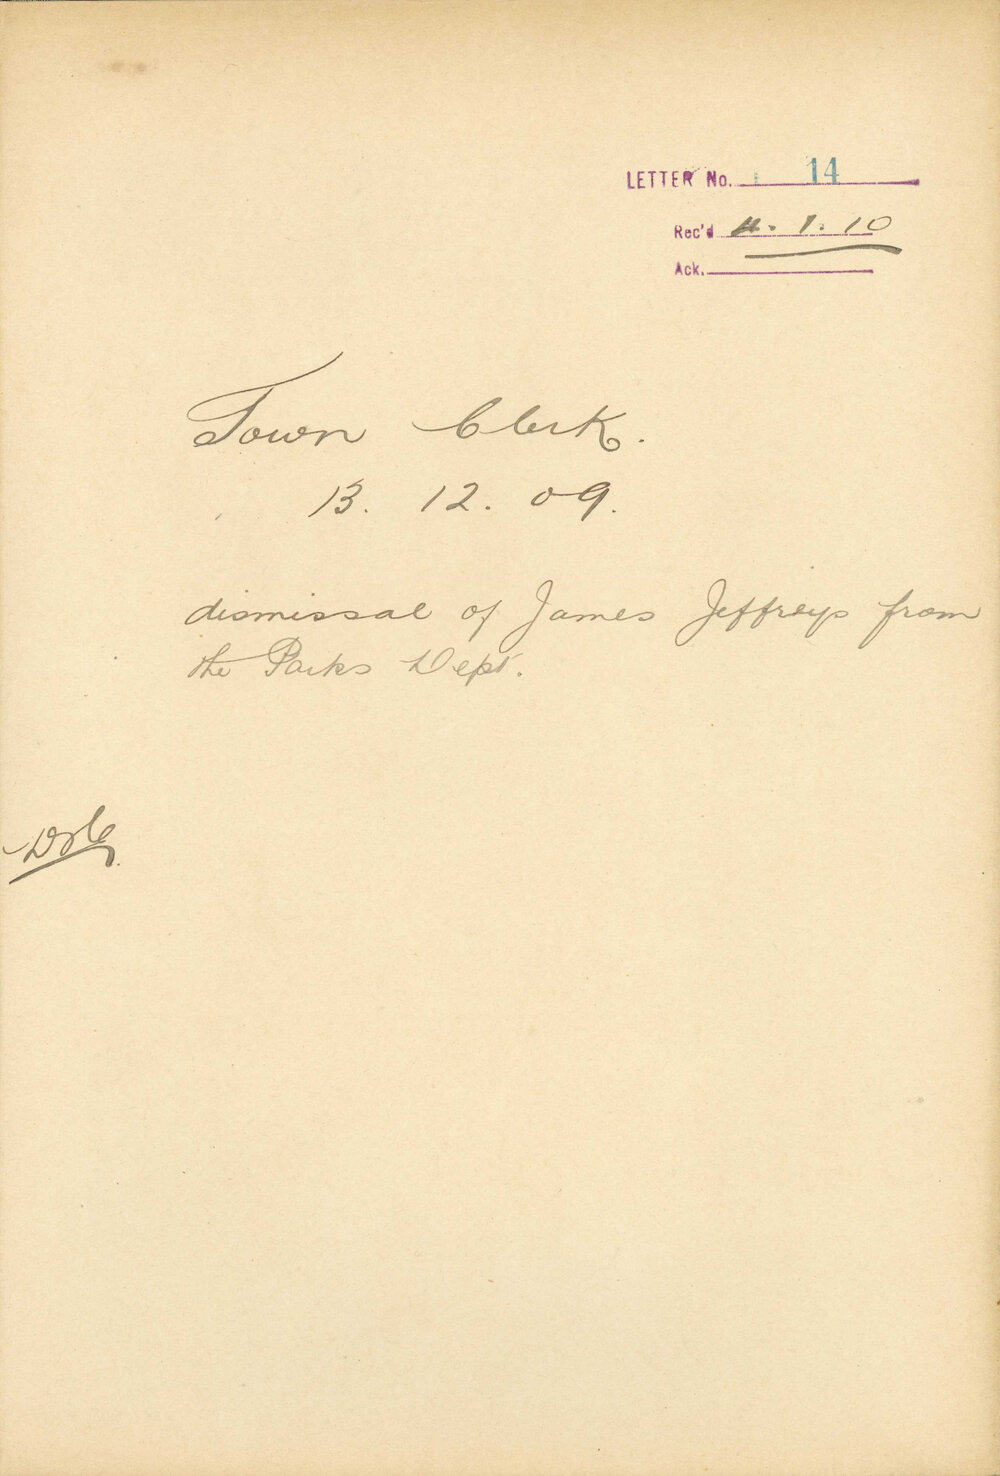 LETTER No. 14
Rec'd 4.1.10
Ack.
Town Clerk.
13. 12. 09.
dismissal of James Jeffreys from
the Parks Dept.